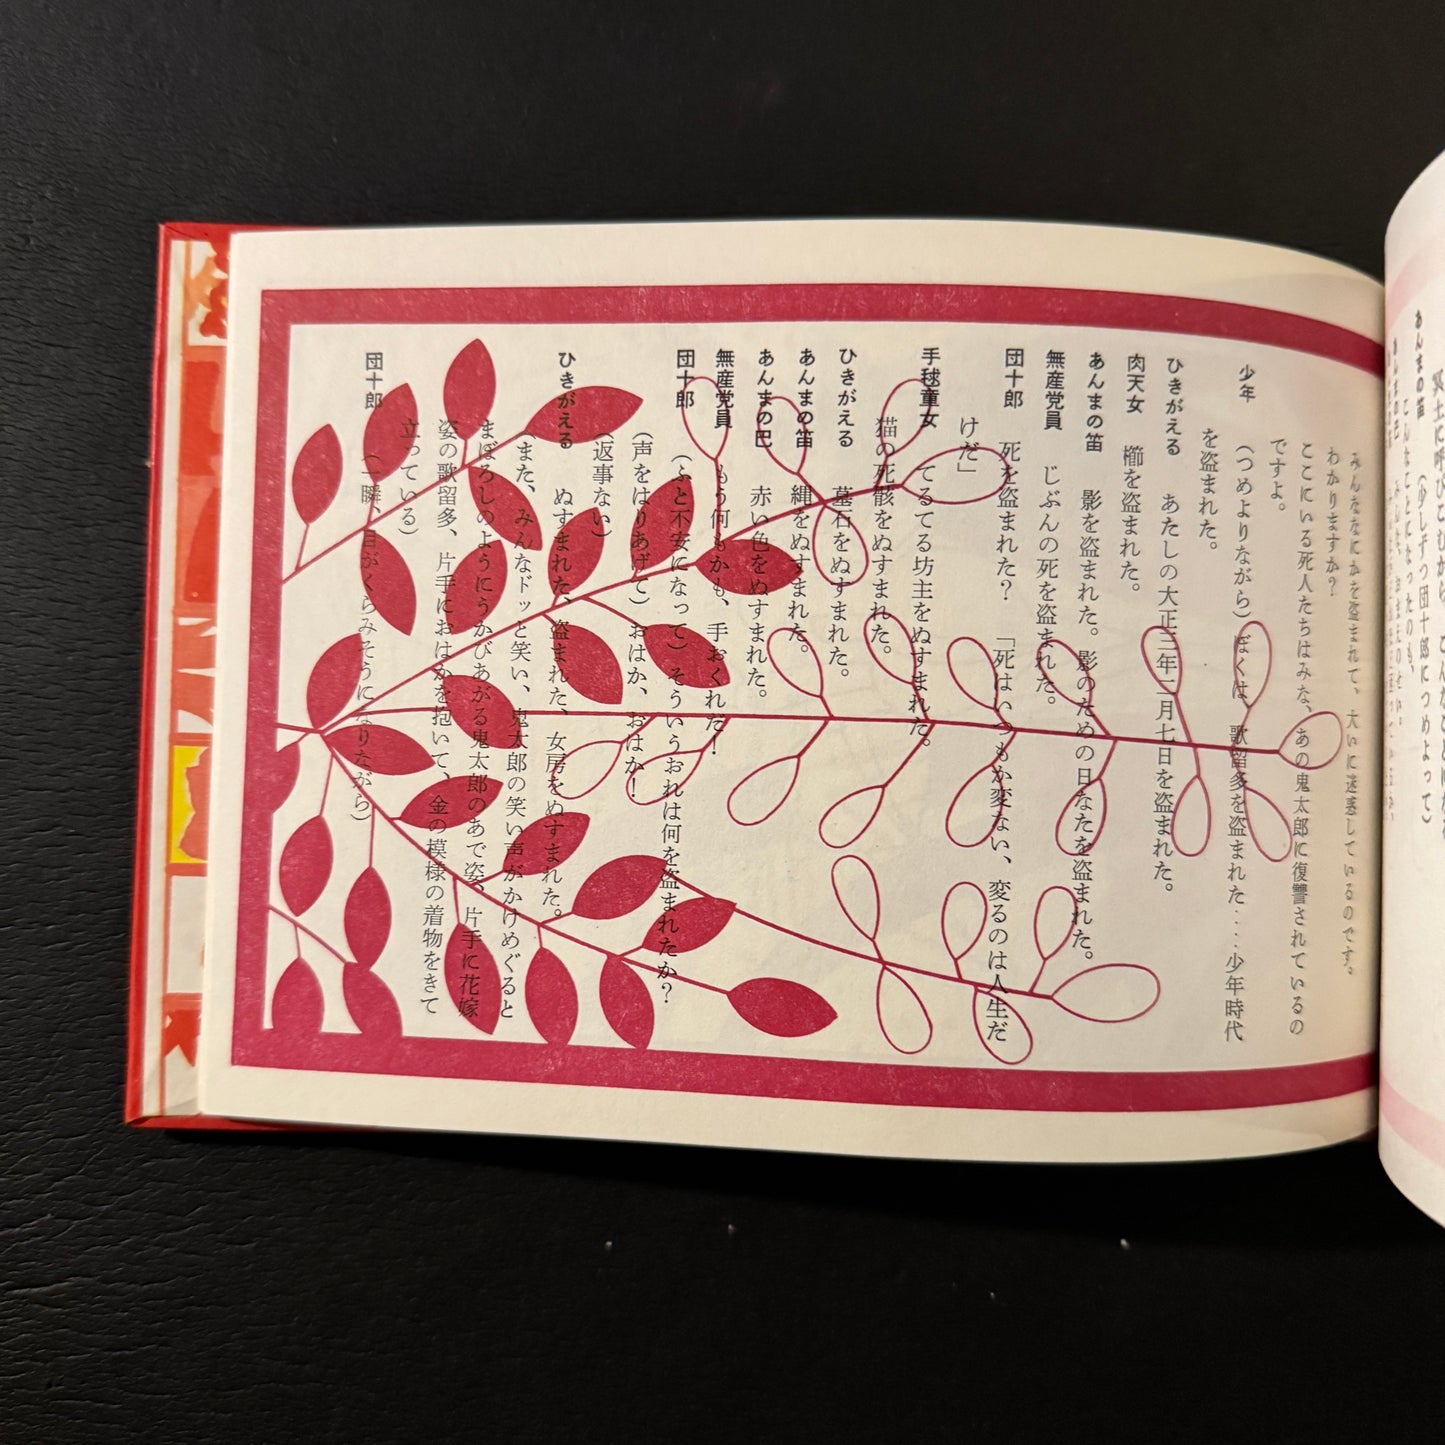 冥土に呼びこむから、こんな
あんまの笛　（少しずつ団十郎につめよって）
こんなことになったのも、
あんまの巴　みんな、お主のせい。
みんななにかを盗まれて、大いに迷惑しているのです。
わかりますか？
ここにいる死人たちはみな、あの鬼太郎に復讐されているの
ですよ。
少年　（つめよりながら）ぼくは、歌留多を盗まれた‥‥少年時代
を盗まれた。
ひきがえる　あたしの大正三年一月七日を盗まれた。
肉天女　櫛を盗まれた。
あんまの笛　影を盗まれた。影のための日なたを盗まれた。
無産党員　じぶんの死を盗まれた。
団十郎　死を盗まれた？　「死はいつもか変ない、変るのは人生だ
けだ」
手毬童女　てるてる坊主をぬすまれた。
猫の死骸をぬすまれた。
ひきがえる　墓石をぬすまれた。
あんまの笛　縄をぬすまれた。
あんまの巴　赤い色をぬすまれた。
無産党員　もう何もかも、手おくれだ！
団十郎　（ふと不安になって）そういうおれは何を盗まれたか？
（声をはりあげて）おはか、おはか！
（返事ない）
ひきがえる　ぬすまれた、盗まれた、女房をぬすまれた。
（また、みんなドッと笑い、鬼太郎の笑い声がかけめぐると
まぼろしのようにうかびあがる鬼太郎のあで姿、片手に花嫁
姿の歌留多、片手におはかを抱いて、金の模様の着物をきて
立っている）
団十郎　（一瞬、目がくらみそうになりながら）